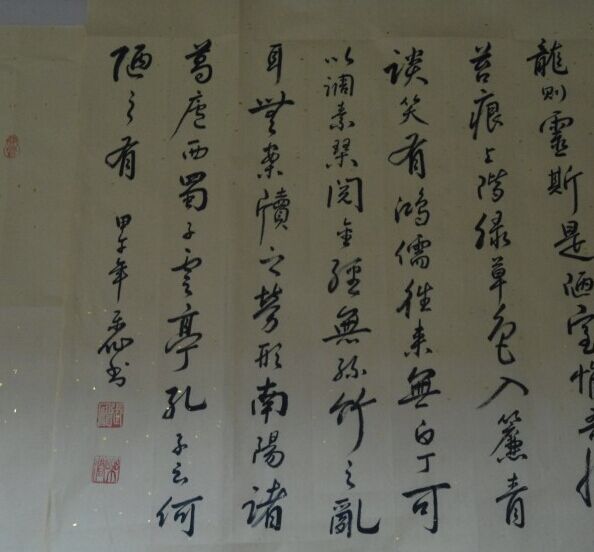 龍則靈斯是陋室惟吾
苔痕上階緑草色入簾青
談笑有鴻儒往来無白丁可
以調素琴閲金經無絲竹之亂
耳無案牘之勞形南陽諸
葛廬西蜀子雲亭孔子云何
陋之有
甲午年
書